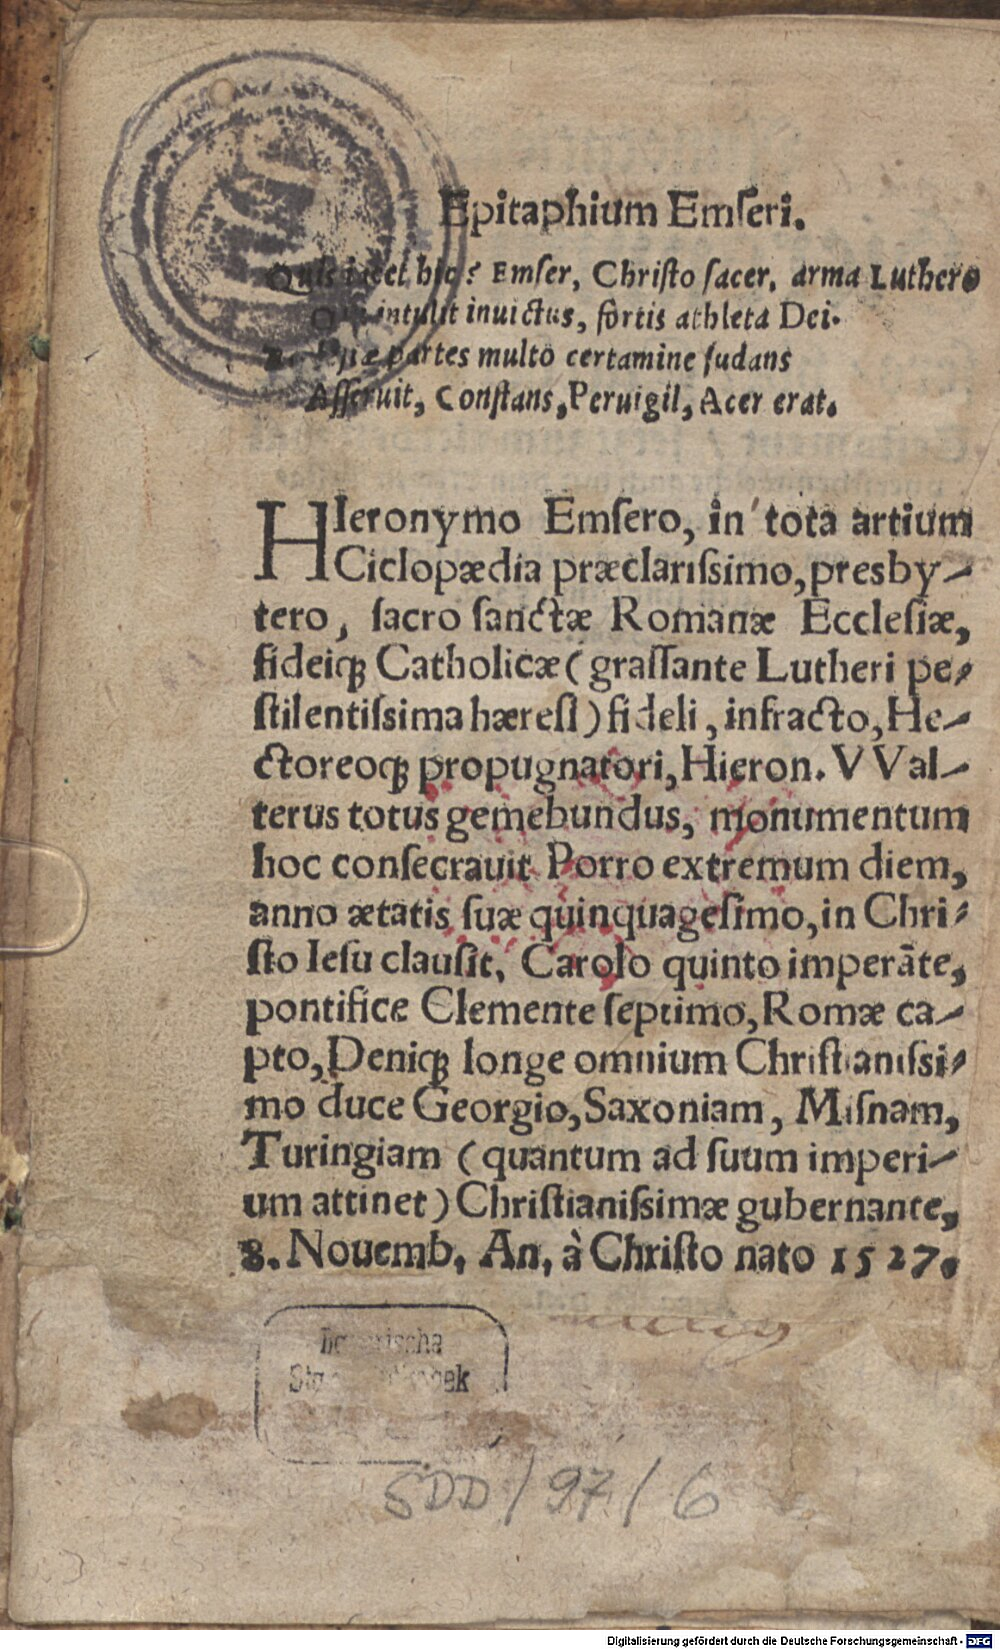 Epitaphium Emſeri.
Quis iacet hic? Emſer, Chriſto ſacer, arma Luthero
intulit inuictus, fortis athleta Dei.
partes multo certamine ſudans
Aſſeruit, Conſtans, Peruigil, Acer erat.
HIeronymo Emſero, in tota artium
Ciclopædia præclariſsimo, presby-
tero, ſacro ſanctæ Romanæ Eccleſiæ,
fideiq́ȝ Catholicæ (graſſante Lutheri pe-
ſtilentiſsima hæreſi) fideli, infracto, He-
ctoreoq́ȝ propugnatori, Hieron. VVal-
terus totus gemebundus, monumentum
hoc conſecrauit Porro extremum diem,
anno ætatis ſuæ quinquageſimo, in Chri-
ſto Ieſu clauſit. Carolo quinto imperāte,
pontifice Clemente ſeptimo, Romæ ca-
pto, Deniq́ȝ longe omnium Chriſtianiſsi-
mo duce Georgio, Saxoniam, Miſnam,
Turingiam (quantum ad ſuum imperi-
um attinet) Chriſtianiſsimæ gubernante,
8. Nouemb. An. à Chriſto nato 1527.
SDD/97/6
Digitalisierung gefördert durch die Deutsche Forschungsgemeinschaft - DFG